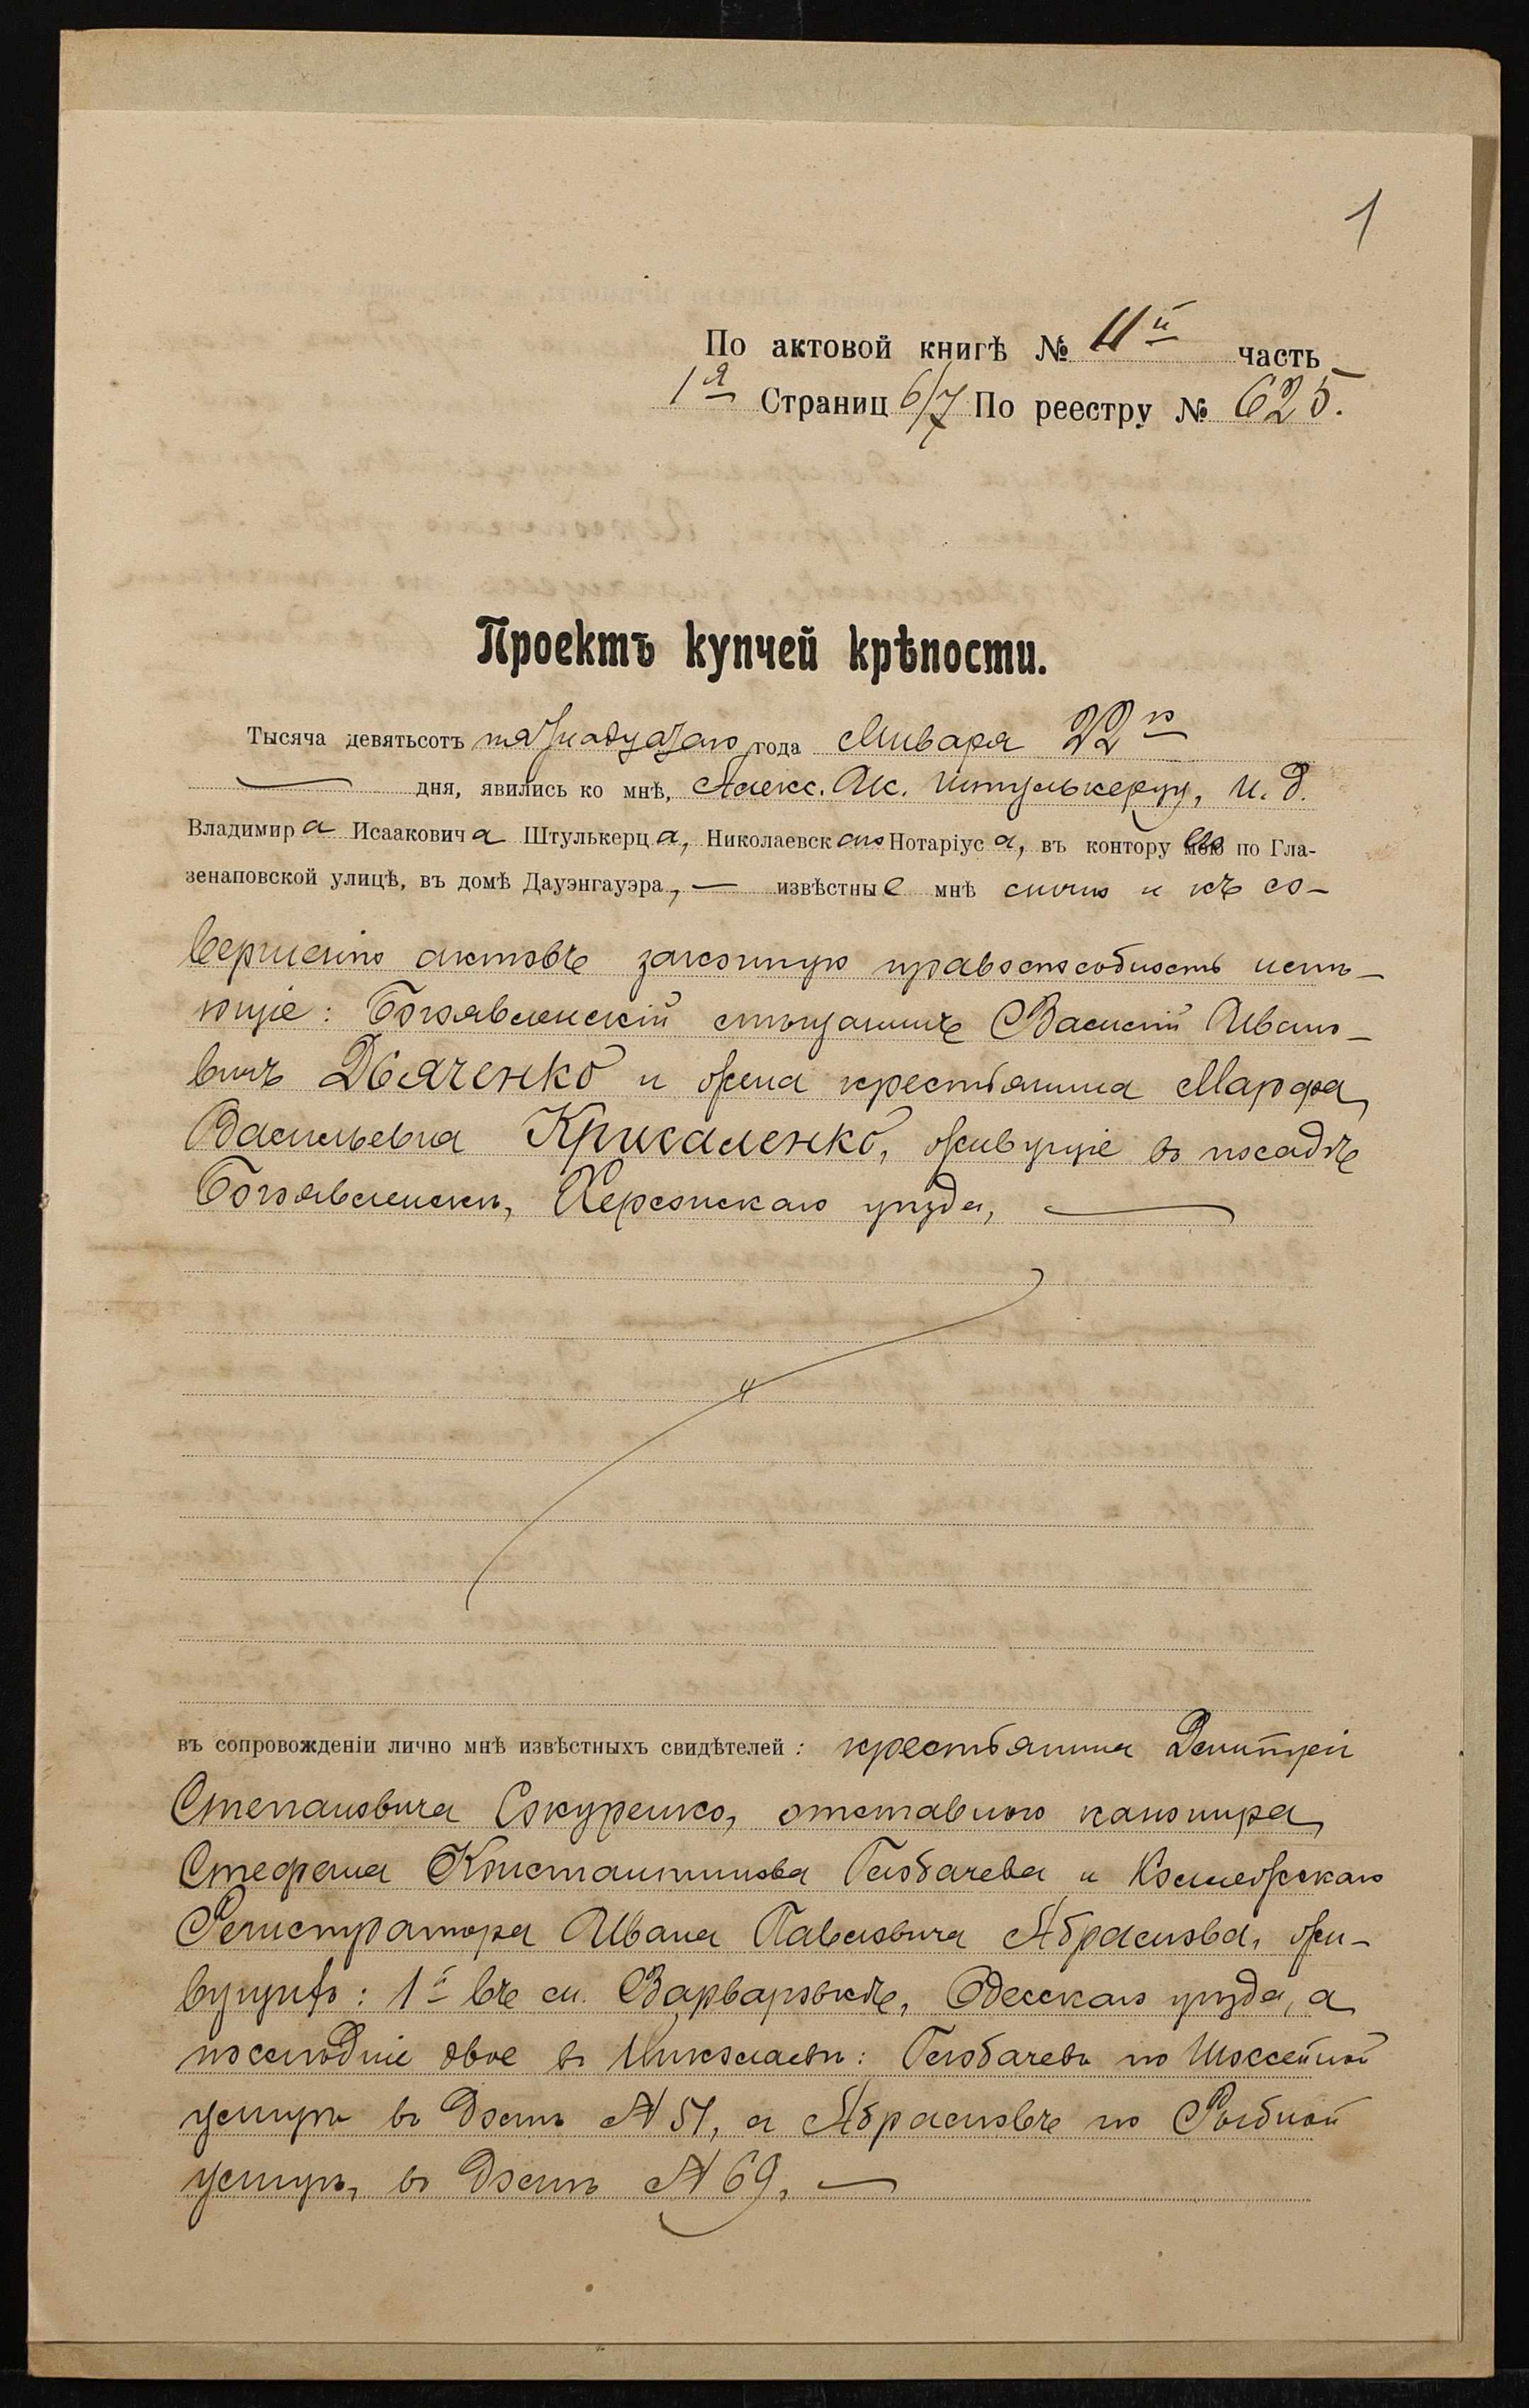 1
По актовой книгѣ № II й часть
1 я Страниц 6/7 По реестру № 625.
Проектъ купчей крѣпости.
Тысяча девятьсотъ пятнадцатаго года Января 22 го
дня, явились ко мнѣ, Алекс. Ис. Штулькерцу, и. д.
Владимира Исааковича Штулькерца, Николаевскаго Нотаріуса, въ контору его по Гла-
зенаповской улицѣ, въ домѣ Дауэнгауэра, — извѣстные мнѣ лично и къ со-
вершенію актовъ законную правоспособность имѣ-
ющіе: Богоявленскій мѣщанинъ Василій Ивано-
вичъ Дьяченко и жена крестьянина Марфа
Васильевна Крикаленко, живущіе въ посадѣ
Богоявленскѣ, Херсонскаго уѣзда,
въ сопровожденіи лично мнѣ извѣстныхъ свидѣтелей: крестьянина Димитрія
Степановича Сокуренко, отставного канонира
Стефана Константинова Голбачева и Коллежскаго
Регистратора Ивана Павловича Абрамова, жи-
вущихъ: 1й въ м. Варваровкѣ, Одесскаго уѣзда, а
послѣдніе двое въ Николаевѣ: Голбачевъ по Шоссейной
улицѣ въ домѣ № 51, а Абрамовъ по Рыбной
улицѣ, въ домѣ № 69.